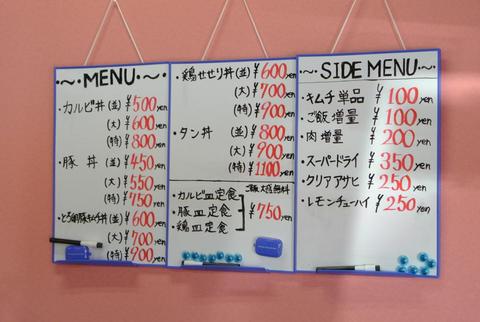 ·〜·MENU·〜·
·カルビ丼(並)¥500yen
(大)¥600yen
(特)¥800yen
·豚丼(並)¥450yen
(大)¥550yen
(特)¥750yen
(並)¥600yen
(大)¥700yen
(特)¥900yen
·鶏せせり丼(並)¥600yen
(大)¥700yen
(特)¥900yen
·タン丼(並)¥800yen
(大)¥900yen
(特)¥1100yen
ご飯大盛無料
·カルビ皿定食
·豚皿定食 ¥750yen
·鶏皿定食
·〜·SIDE MENU·〜·
·キムチ単品 ¥100yen
·ご飯増量 ¥100yen
·肉増量 ¥200yen
·スーパードライ ¥350yen
·クリアアサヒ ¥250yen
·レモンチューハイ ¥250yen